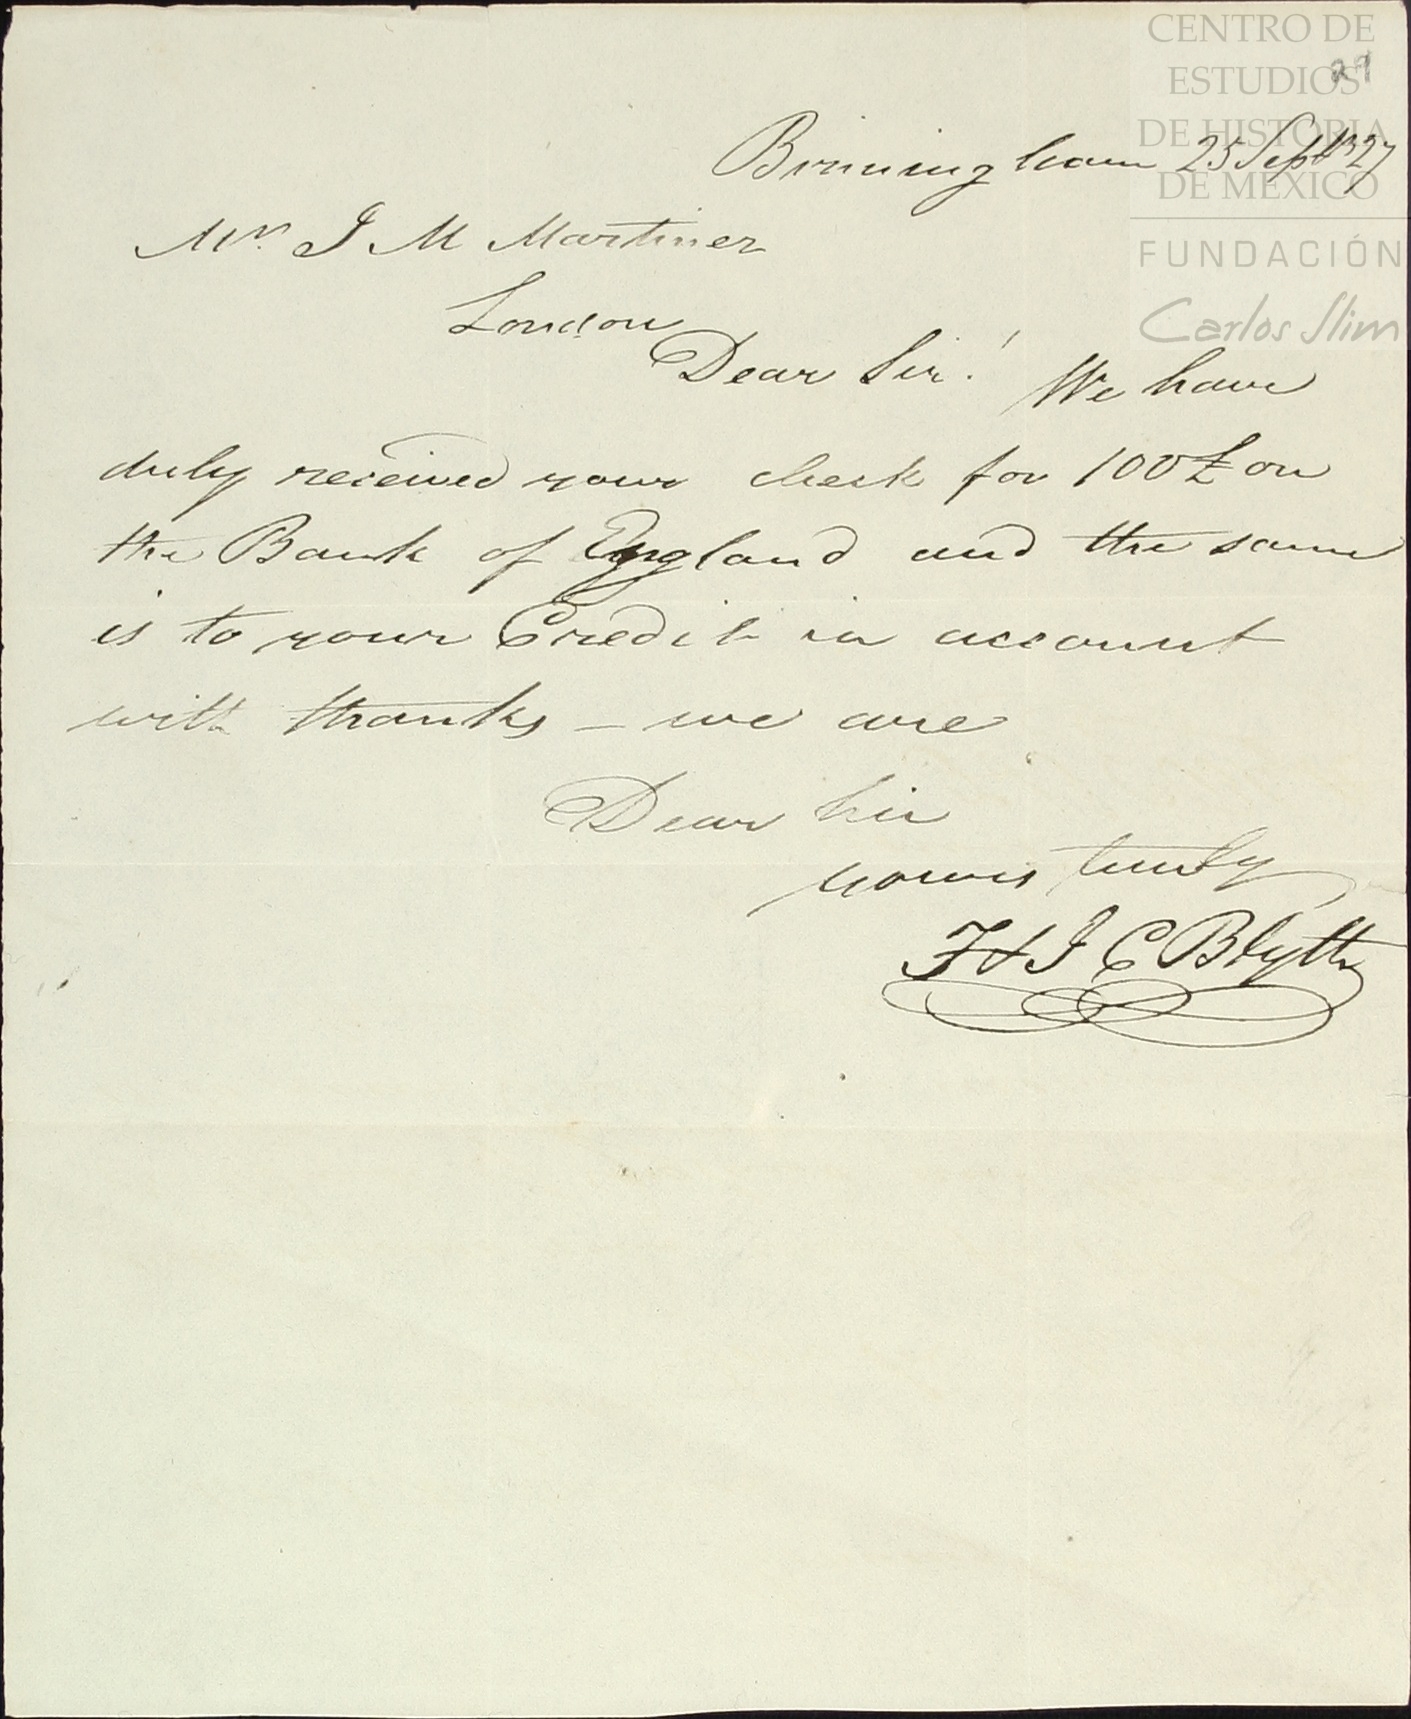 CENTRO DE
ESTUDIOS
DE HISTORIA
DE MEXICO
FUNDACIÓN
Carlos Slim
29
Birmingham 25 Septbr 27
Mr. J M Martiner
London
Dear Sir! We have
duly received your check for 100£ on
the Bank of England and the same
is to your Credit in account
with thanks – we are
Dear Sir
yours truly
F & J C Blyth